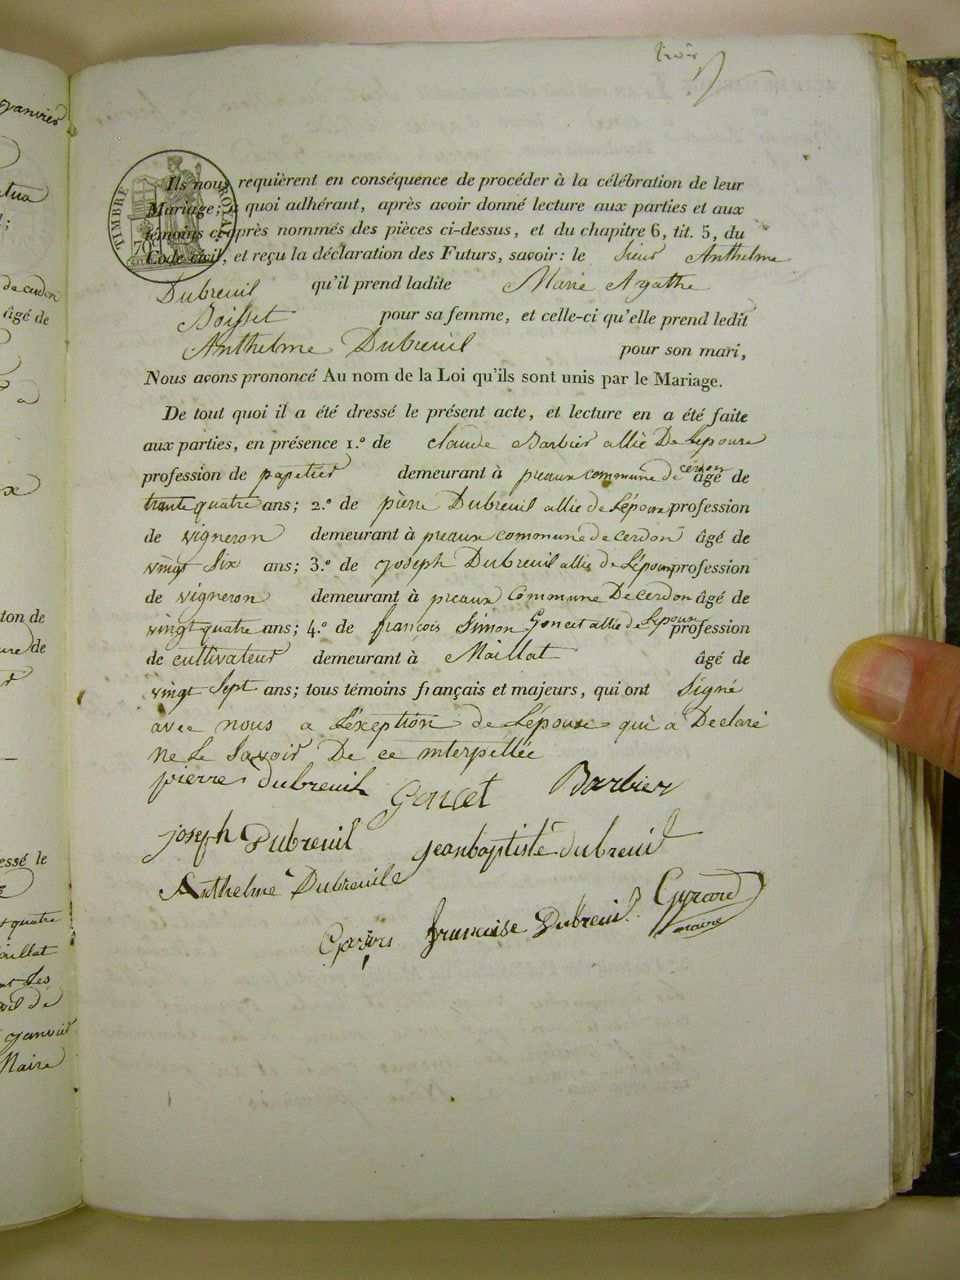 trois
TIMBRE ROYAL
70
Ils nous requièrent en conséquence de procéder à la célébration de leur
Mariage; à quoi adhérant, après avoir donné lecture aux parties et aux
témoins ci-après nommés des pièces ci-dessus, et du chapitre 6, tit. 5, du
Code civil, et reçu la déclaration des Futurs, savoir: le sieur Anthelme
Dubreuil qu'il prend ladite Marie Agathe
Boisset pour sa femme, et celle-ci qu'elle prend ledit
Anthelme Dubreuil pour son mari,
Nous avons prononcé Au nom de la Loi qu'ils sont unis par le Mariage.
De tout quoi il a été dressé le présent acte, et lecture en a été faite
aux parties, en présence 1.° de claude Barbier allié De Lepoux
profession de papetier demeurant à preaux commune de cerdon âgé de
trante quatre ans; 2.° de pierre Dubreuil allié de Lépoux profession
de vigneron demeurant à preaux commune de cerdon âgé de
vingt Six ans; 3.° de joseph Dubreuil allié de Lépoux profession
de vigneron demeurant à preaux Commune De cerdon âgé de
vingt quatre ans; 4.° de françois Simon Goncet allié de Lepoux profession
de cultivateur demeurant à Maillat âgé de
vingt Sept ans; tous témoins français et majeurs, qui ont Signé
avec nous a Léxeption de Lépouse qui a Declaré
ne Le Savoir De ce interpellée
pierre dubreuil Goncet Barbier
joseph Dubreuil jeanbaptiste dubreuil
Anthelme Dubreuile
francoise Dubreuil Gyrard
maire
janvier
de cerdon
âgé de
ton de
ure de
essé le
quatre
maillat
janvier
Maire